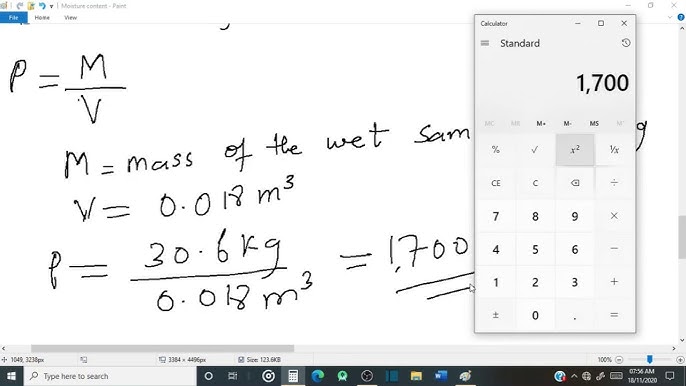 Moisture content - Paint
File Home View
P = M
V
M = mass of the wet sam
V = 0.018 m³
P = 30.6 kg = 1,700
0.018 m³
Calculator
Standard
1,700
MC MR M+ M- MS M˅
% √ x² ¹/x
CE C ⌫ ÷
7 8 9 ×
4 5 6 −
1 2 3 +
± 0 . =
1049, 3238px 3384 × 4496px Size: 123.6KB 100%
Type here to search
07:56 AM
ENG
18/11/2020